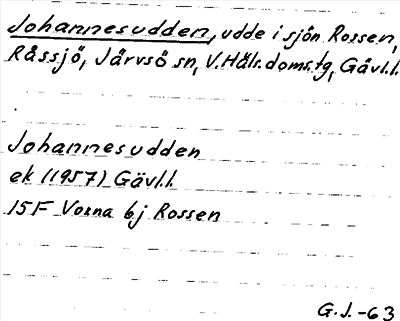 Johannesudden, udde i sjön Rossen,
Råssjö, Järvsö sn, V. Häls. doms.tg, Gävl.l.
Johannesudden
ek (1957) Gävl.l.
15F Voxna 6j Rossen
G.J.-63